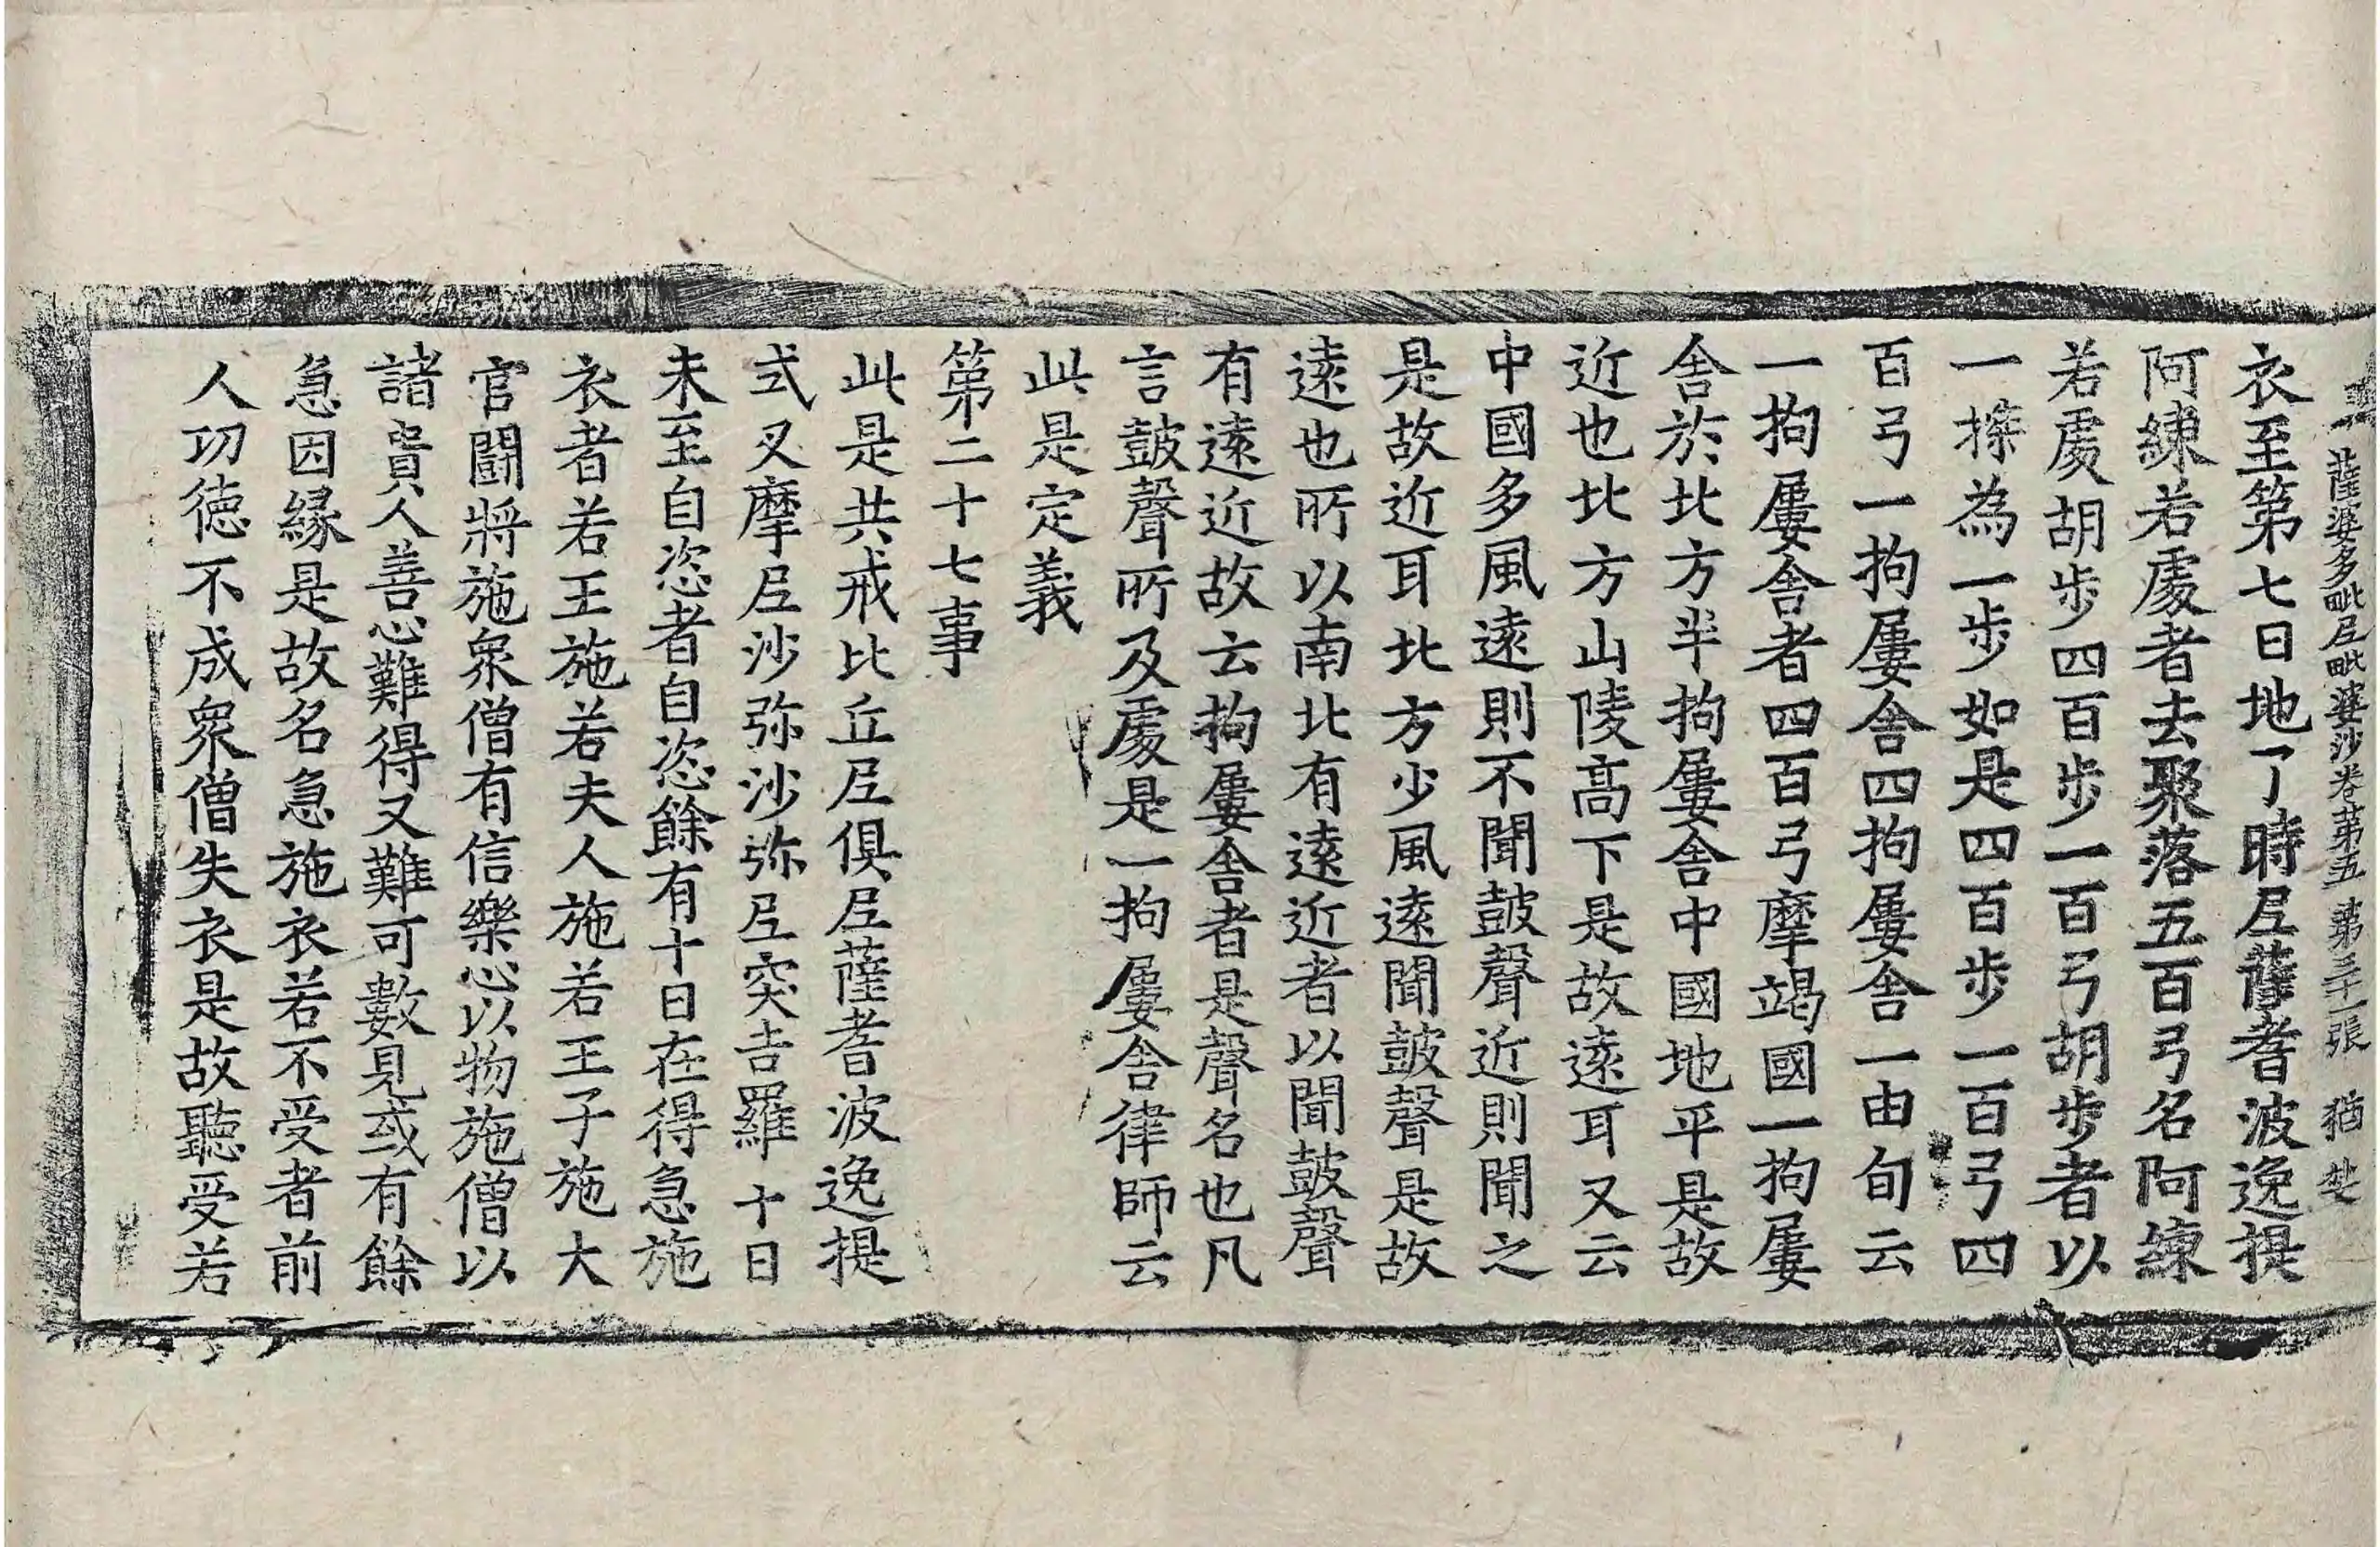 薩婆多毗尼毗婆沙卷第五 第三十一張 猶
衣至第七日地了時尼薩耆波逸提
阿練若處者去聚落五百弓名阿練
若處胡步四百步一百弓胡步者以
一㨾為一步如是四百步一百弓四
百弓一拘屢舍四拘屢舍一由旬云
一拘屢舍者四百弓摩竭國一拘屢
舍於北方半拘屢舍中國地平是故
近也北方山陵高下是故遠耳又云
中國多風遠則不聞鼓聲近則聞之
是故近耳北方少風遠聞鼓聲是故
遠也所以南北有遠近者以聞鼓聲
有遠近故云拘屢舍者是聲名也凡
言鼓聲所及處是一拘屢舍律師云
此是定義
第二十七事
此是共戒比丘尼俱尼薩耆波逸提
式叉摩尼沙弥沙弥尼突吉羅十日
未至自恣者自恣餘有十日在得急施
衣者若王施若夫人施若王子施大
官鬪將施衆僧有信樂心以物施僧以
諸貴人善心難得又難可數見或有餘
急因緣是故名急施衣若不受者前
人功德不成衆僧失衣是故聽受若